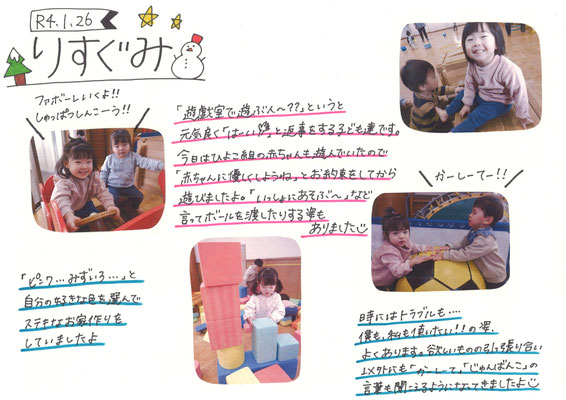 R4.1.26
りすぐみ
ファボーしいくよ!!
しゅっぱつしんこーう!!
「遊戯室で遊ぶ人〜??」というと
元気良く「はーい」と返事をする子ども達です。
今日はひよこ組の赤ちゃんも遊んでいたので
「赤ちゃんに優しくしようね」とお約束をしてから
遊びましたよ。「いっしょにあそぶ〜」など
言ってボールを渡したりする姿も
ありました
かーしーてー!!
「ピンク…みずいろ…」と
自分の好きな色を選んで
ステキなお家作りを
していましたよ
時にはトラブルも‥‥
僕も、私も使いたい!!の姿、
よくあります。欲しいものの引っ張り合い
以外にも「かーしーて」「じゅんばんこ」の
言葉も聞こえるようになってきましたよ